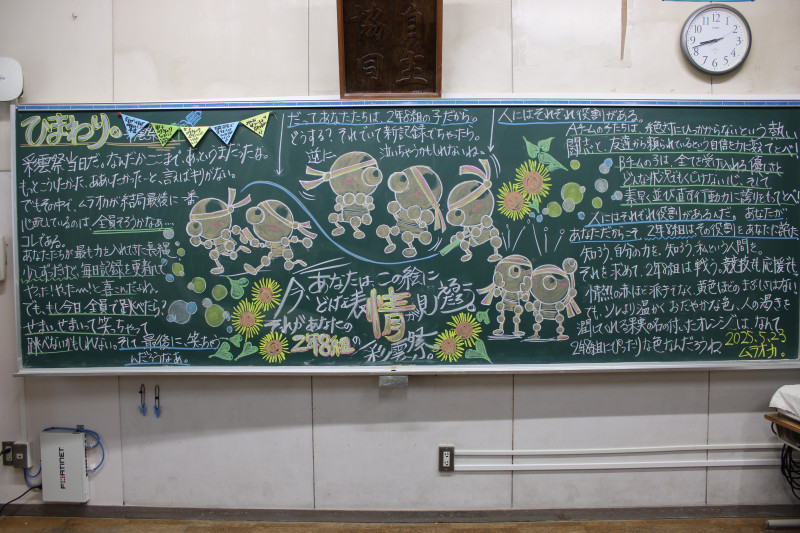 自主
協同
ひまわり。
彩雲祭当日だ。なんだかここまで、あっというまだったよな。
もっとこうしたかった、ああしたかったーと、言えばキリがない。
でもその中で、ムラオカが結局最後に一番
心配しているのは、全員そろうかなぁ…
コレである。
あなたたちが最も力を入れてきた長縄
少しずつだけど、毎日記録を更新して
やったー!やたー…!と喜んだよね。
でも、もし今日全員で跳べたら?
せまいせまいって笑っちゃって
跳べないかもしれない。そして最後に、笑っちゃう
んだろうなぁ。
だってあなたたちは、2年8組の子だから。
どうする?それでいて新記録でちゃったら。
逆に、
泣いちゃうかもしれないね。
今、あなたはこの絵に
どんな表情を見い出すだろう
それがあなたの
2年8組の
彩雲祭。
人にはそれぞれ役割がある。
Aチームの子たちは、負色だけに分からないという熱い
闘志で、友達から頼られているという自信を力に数でとべ!
Bチームの子は、全てを受け入れる優しさと
どんな状況もくじけない心、そして
素早く並び直す行動力に誇りをもってとべ!
人にはそれぞれ役割があるんだ。あなたが
あなただからこそ、2年8組はその役割をあなたに託した。
知ろう、自分の力を。知ろう、私という人間を。
それを求めて、2年8組は戦う。競技も、応援も。
情熱の赤ほど派手でなく、黄色ほどのまぶしさはない
でも、ソレより温かく、おだやかな色、人の渇きを
潤してくれる果実の名の付いたオレンジは、なんて
2年8組にぴったりな色なんだろうね。
2025.5.23
ムラオカ。
FORTINET